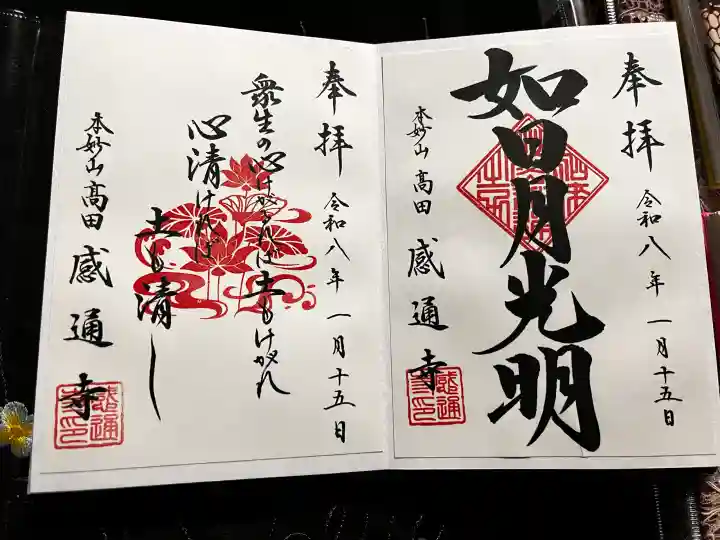 奉拝
令和八年一月十五日
如日月光明
本妙山高田
感通寺
奉拝
令和八年一月十五日
衆生の心けがるれば土もけがれ
心清ければ
土も清し
本妙山高田
感通寺
感通寺印